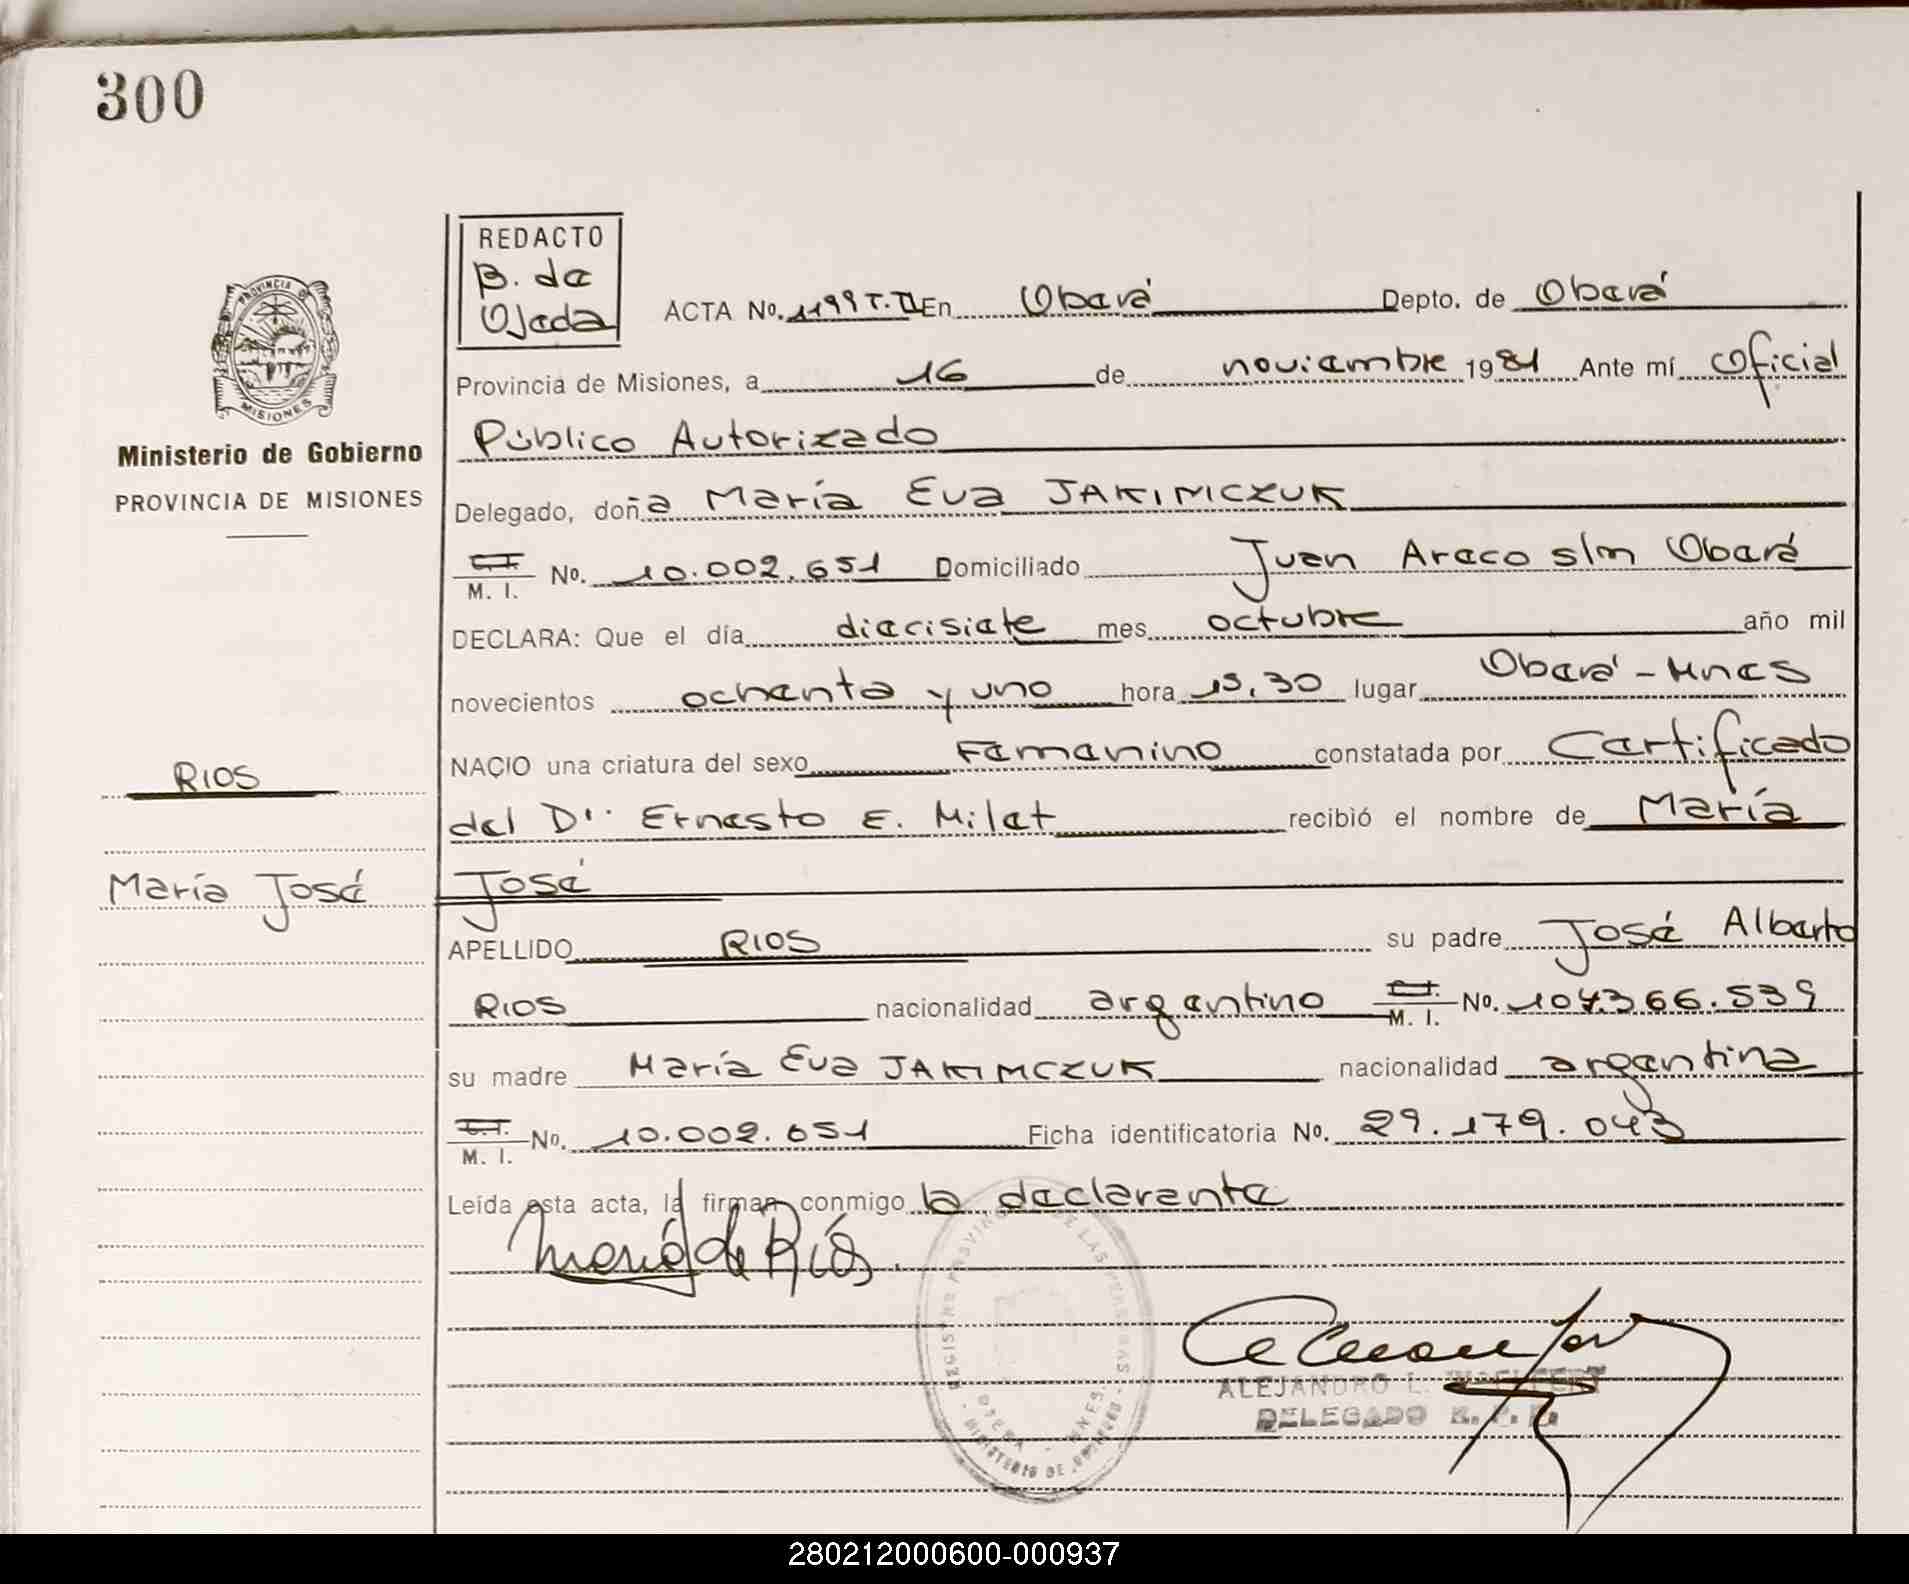 300
REDACTO
B. de
Ojeda
ACTA No. 1199 T. II En Oberá Depto. de Oberá
Provincia de Misiones, a 16 de noviembre 1981 Ante mí Oficial
Público Autorizado
Delegado, doña María Eva JAKIMCZUK
C.I. M. I. No. 10.002.651 Domiciliado Juan Areco s/n Oberá
DECLARA: Que el día diecisiete mes octubre año mil
novecientos ochenta y uno hora 15,30 lugar Oberá - Mnes
NACIO una criatura del sexo Femenino constatada por Certificado
del Dr. Ernesto E. Milet recibió el nombre de María
José
APELLIDO RIOS su padre José Alberto
RIOS nacionalidad argentino C.I. M. I. No.
su madre María Eva JAKIMCZUK nacionalidad argentina
C.I. M. I. No. 10.002.651 Ficha identificatoria No. 29.179.043
Leída esta acta, la firman conmigo la declarante
María de Ríos.
ALEJANDRO L.
DELEGADO R. P. P.
PROVINCIA D
MISIONES
Ministerio de Gobierno
PROVINCIA DE MISIONES
RIOS
María José
REGISTRO PROVINCIAL DE LAS PERSONAS
OBERA - MNES.
MINISTERIO DE GOBIERNO
280212000600-000937